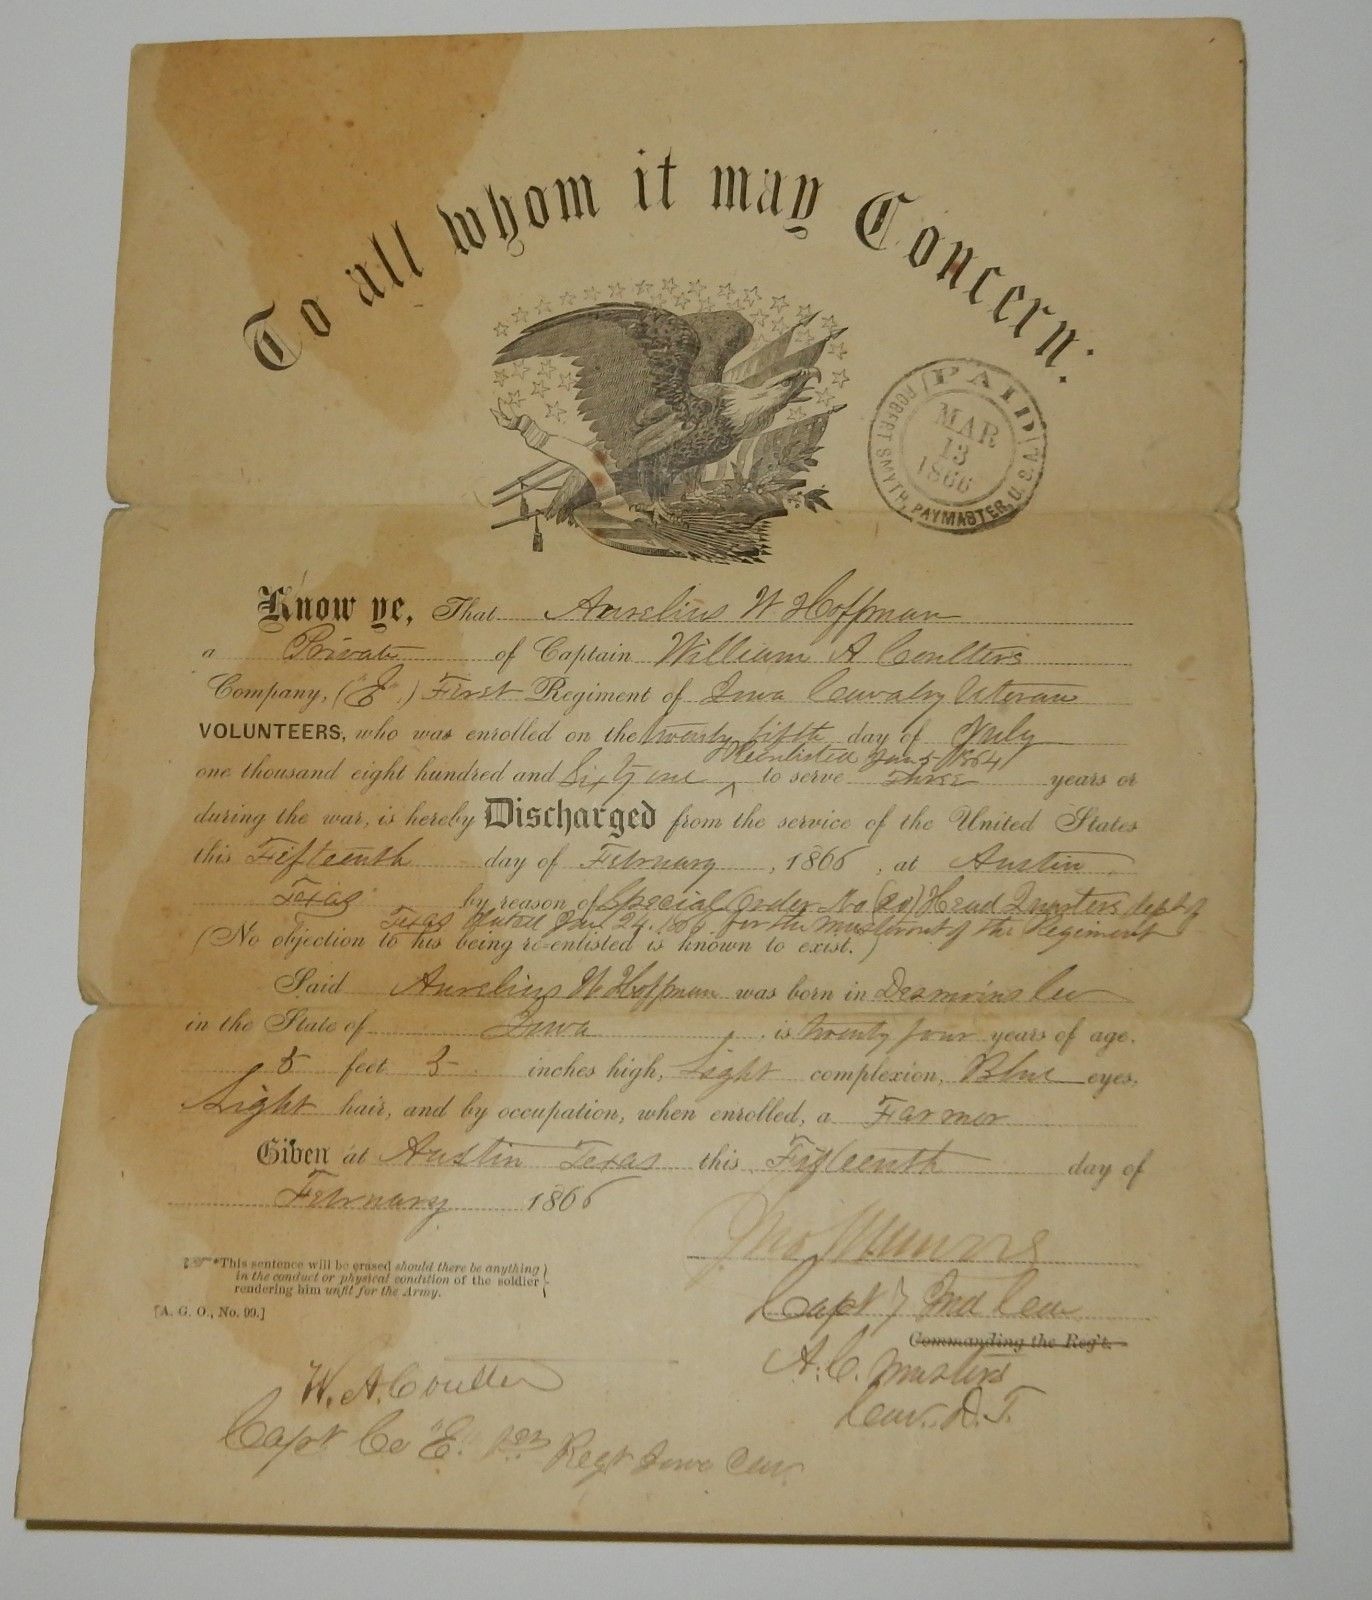 To all whom it may Concern:
PAID
MAR
13
1866
ROBERT SMYTH, PAYMASTER, U.S.A.
Know ye, That Aurelius W Hoffman
a Private of Captain William A Coulters
Company, ("E") First Regiment of Iowa Cavalry Veteran
VOLUNTEERS, who was enrolled on the twenty fifth day of July
Reenlisted Jan 5 1864
one thousand eight hundred and Sixty one ^ to serve Three years or
during the war, is hereby Discharged from the service of the United States
this Fifteenth day of February, 1866, at Austin
Texas by reason of Special Order No (20) Head Quarters dept of
Texas dated Jan 24. 1866 for the Muster out of the Regiment
(No objection to his being re-enlisted is known to exist.)
Said Aurelius W Hoffman was born in Desmoins Co
in the State of Iowa, is twenty four years of age.
5 feet 5 inches high, Light complexion, Blue eyes,
Light hair, and by occupation, when enrolled, a Farmer
Given at Austin Texas this Fifteenth day of
February 1866
*This sentence will be erased should there be anything
in the conduct or physical condition of the soldier
rendering him unfit for the Army.
[A. G. O., No. 99.]
Capt 7 Ind Cav
Commanding the Reg't.
A. C. Musters
Cav. D. T.
W. A. Coulter
Capt Co "E" 1st Regt Iowa Cav